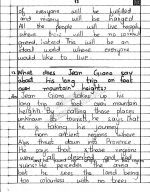 13
of everyone will be fulfilled
and many will be changed
All the people will live happily
where there will be no control
greed, hatred. This will be an
ideal world where everyone
would like to live.
What does Jean Giono say
about his long trip on foot
over mountain heights?
Jean Giono takes up his
long trip on foot over mountain
heights. By calling those places
unknown to tourist, he says that
he is taking his journey
from ancient regions where
Alps thrust down into Province
He says that these regions
were all deserted and had
colourless
but he sees the land being
too colourless with no trees